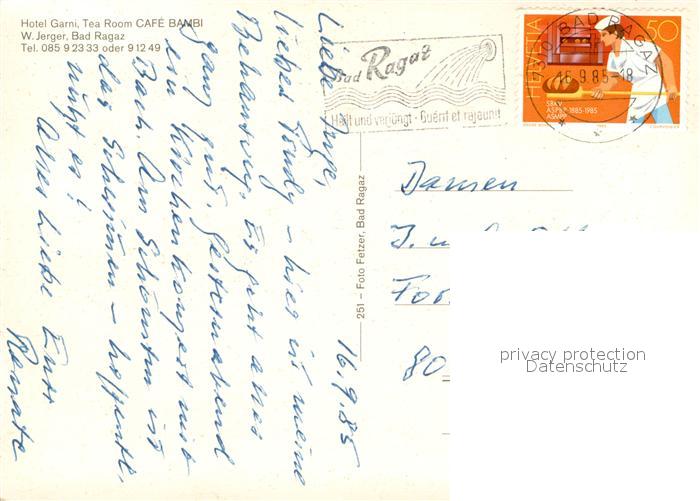 Hotel Garni, Tea Room CAFÉ BAMBI
W. Jerger, Bad Ragaz
Tel. 085 9 23 33 oder 9 12 49
Liebe Inge,
liebes Trudy – hier ist meine
Behausung. Es geht alles
ganz gut, gestern abend
ein Kirchenkonzert mit
Bach. Am Schönsten ist
das Schwimmen – hoffentl.
nützt es!
Alles Liebe Eure
Renate
16.9.85
251 – Foto Fetzer, Bad Ragaz
Bad Ragaz
Heilt und verjüngt - Guérit et rajeunit
7310 BAD RAGAZ
16.9.85-18
HELVETIA
50
SBKV
ASPBP 1885-1985
ASMPP
Damen
J. u.
80
privacy protection
Datenschutz